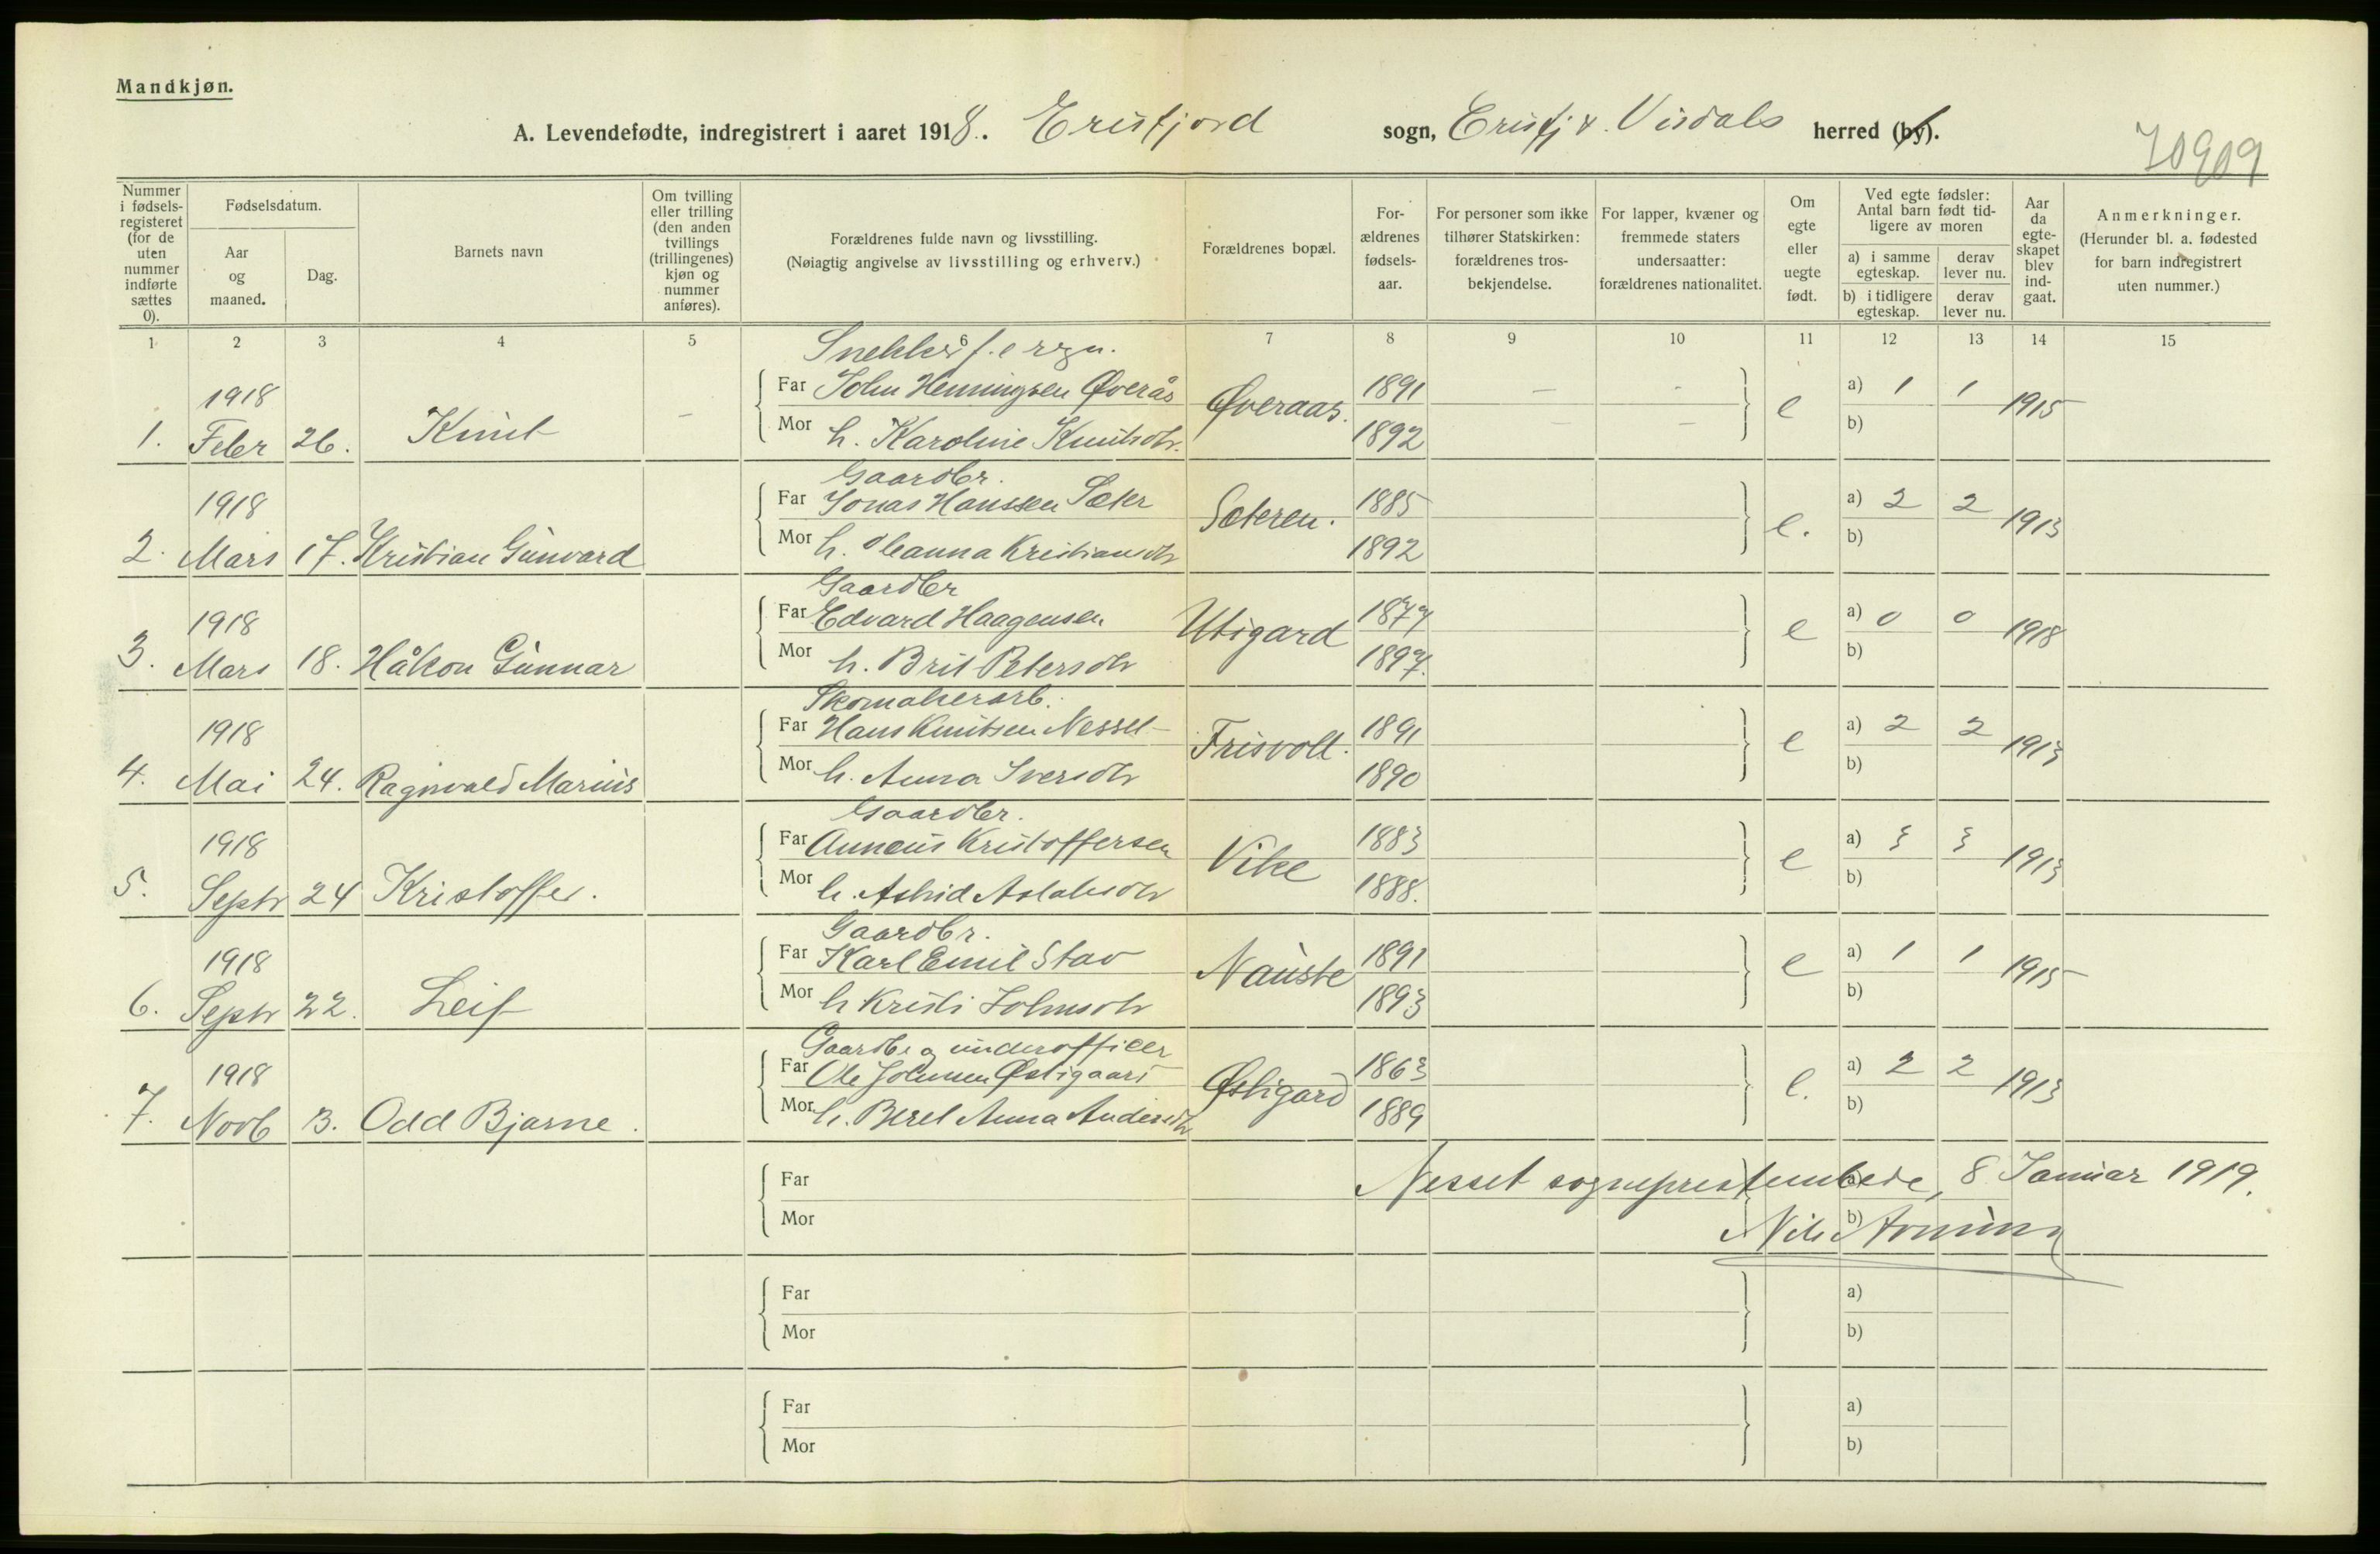 Mandkjøn.
A. Levendefødte, indregistrert i aaret 1918. Eresfjord sogn, Erisfj & Visdals herred (by).
70909
Nummer i fødsels-registeret (for de uten nummer indførte sættes 0).
Fødselsdatum.
Aar og maaned.
Dag.
Barnets navn
Om tvilling eller trilling (den anden tvillings (trillingenes) kjøn og nummer anføres).
Forældrenes fulde navn og livsstilling.
(Nøiagtig angivelse av livsstilling og erhverv.)
Forældrenes bopæl.
For-ældrenes fødsels-aar.
For personer som ikke tilhører Statskirken: forældrenes tros-bekjendelse.
For lapper, kvæner og fremmede staters undersaatter: forældrenes nationalitet.
Om egte eller uegte født.
Ved egte fødsler: Antal barn født tid-ligere av moren
a) i samme egteskap.
derav lever nu.
b) i tidligere egteskap.
derav lever nu.
Aar da egte-skapet blev ind-gaat.
Anmerkninger.
(Herunder bl. a. fødested for barn indregistrert uten nummer.)
1 2 3 4 5 6 7 8 9 10 11 12 13 14 15
Snekker f. e rgn.
1918 Far John Henningsen Øverås 1891 - - a) 1 1
1. Febr 26. Knut - Mor h. Karoline Knutsdtr. Øveraas. 1892 - - e b) 1915
Gaardbr.
1918 Far Jonas Hanssen Sæter 1885 a) 2 2
2. Mars 17. Kristian Gunvard Mor h. Oleanna Kristiansdtr Sæteren. 1892 e. b) 1913
Gaardbr
1918 Far Edvard Haagensen 1877 a) 0 0
3. Mars 18. Håkon Gunnar Mor h. Brit Petersdtr Utigard 1897. e b) 1918
Skomakerarb.
1918 Far Hans Knutsen Nesset 1891 a) 2 2
4. Mai 24. Ragnvald Marius Mor h. Anna Iversdtr Frisvoll. 1890 e b) 1913
Gaardbr.
1918 Far Anneus Kristoffersen 1883 a) 3 3
5. Septr 24 Kristoffer. Mor h. Astrid Aslaksdtr Vike 1888. e b) 1913
Gaardbr.
1918 Far Karl Emil Stav 1891 a) 1 1
6. Septr 22. Leif Mor h Kristi Johnsdtr Nauste 1893 e b) 1915
Gaardbr og underofficer
1918 Far Ole Johnsen Østigaard 1863 a) 2 2
7. Novb 3. Odd Bjarne. Mor h. Beret Anna Andersdtr Østigard 1889 e. b) 1913
Far a)
Nesset sogneprestembede, 8 Januar 1919.
Mor b)
Nils
Far a)
Mor b)
Far a)
Mor b)